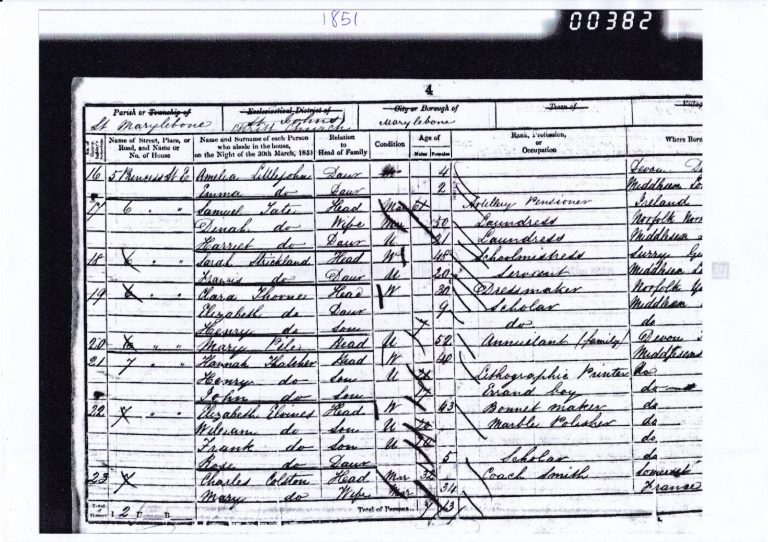 1851
00382
4
Parish or Township of Ecclesiastical District of City or Borough of Town of Village
St Marylebone St Johns Church Marylebone
Name of Street, Place, or Road, and Name or No. of House Name and Surname of each Person who abode in the house, on the Night of the 30th March, 1851 Relation to Head of Family Condition Age of Males Females Rank, Profession, or Occupation Where Born
16 5 Princess St E Amelia Littlejohn Daur 4 Devon
Emma do Daur 2 Middlesex
17 6 " " Samuel Tate Head Mar 61 Artillery Pensioner Ireland
Dinah do Wife Mar 50 Laundress Norfolk
Harriet do Daur U 21 Laundress Middlesex
18 6 " " Sarah Strickland Head W 48 Schoolmistress Surry
Francis do Daur U 20 Servant Middlesex
19 6 " " Clara Thorne Head W 30 Dressmaker Norfolk
Elizabeth do Daur 9 Scholar Middlesex
Henry do Son 7 do do
20 " " Mary Pile Head U 52 Annuitant (family) Devon
21 7 " " Hannah Thatcher Head W 40 Middlesex
Henry do Son U Lithographic Printer do
John do Son Errand boy do
22 " " Elizabeth Head W 43 Bonnet maker do
William do Son U 20 Marble Polisher do
Frank do Son U do
Rose do Daur 5 Scholar do
23 " " Charles Colston Head Mar 32 Coach Smith Somerset
Mary do Wife Mar 34 France
Total Houses 2 Total of Persons 13